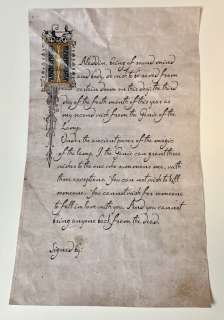 I Aladdin, being of sound mind
and body, do wish to be saved from
certain doom on this day, the third
day of the tenth month of this year as
my second wish from the Genie of the
Lamp.
Under the ancient power of the magic
of the lamp, I the Genie can grant three
wishes to the one who summons me, with
three exceptions. You can not wish to kill
someone. You cannot wish for someone
to fall in love with you. And you cannot
bring anyone back from the dead.
Signed by